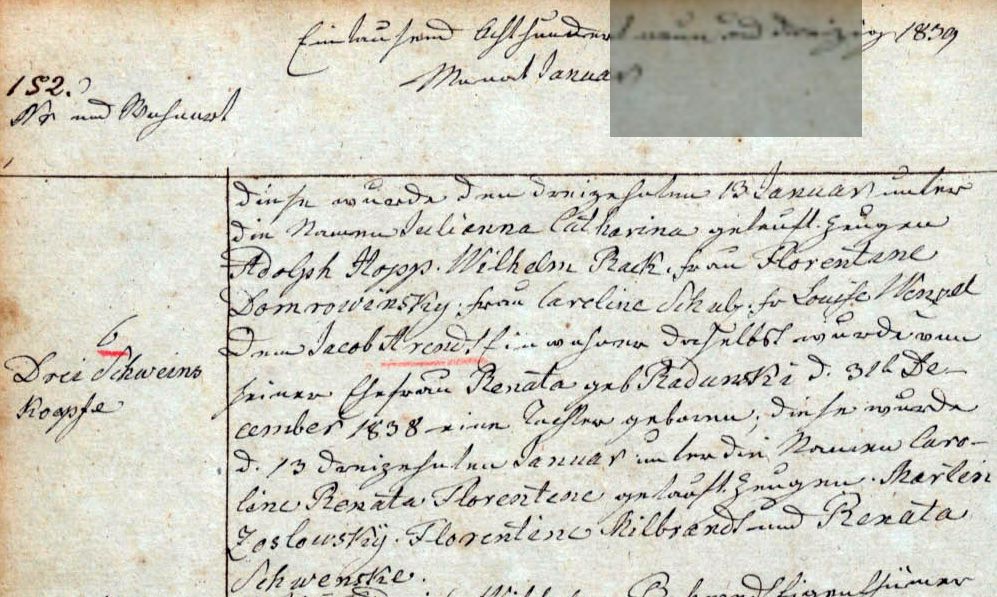 Eintausend Achthundert neun und dreizig 1839
Monat Januar
152.
Nr und Wohnort
diese wurde den dreizehnten 13 Januar unter
die Namen Julianna Catharina getauft. Zeugen
Adolph Hopp. Wilhelm Rack. frau Florentine
Domrowinsky. frau Careline Schulz. fr Louise Wenzel
6
Dem Jacob Arendt Einwohner daselbst wurde von
Drei Schweins
seiner Ehefrau Renata geb Radunski d. 31t De-
Koepfe
cember 1838 eine Tochter geboren, diese wurde
d. 13 dreizehnten Januar unter die Namen Caro-
line Renata Florentene getauft. Zeugen. Martin
Zoslowsky. Florentine Milbrandt und Renata
Schwenske.
Wilhelm Eigenthümer